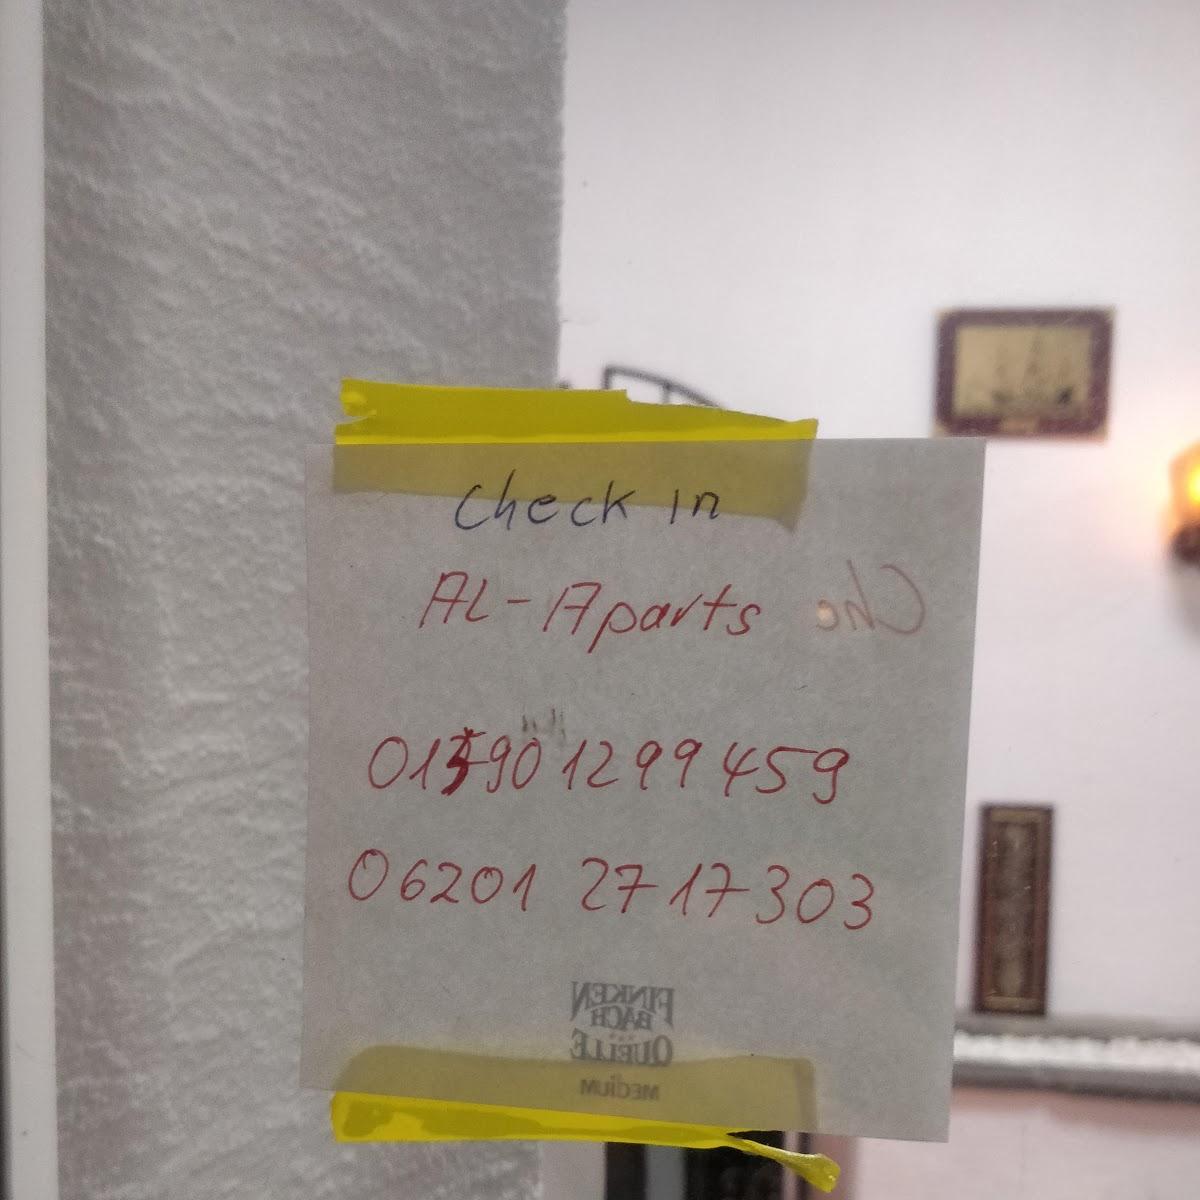 Check in
AL-Aparts
Che
015901299459
06201 2717303
FINKEN
BACH
QUELLE
MEDIUM